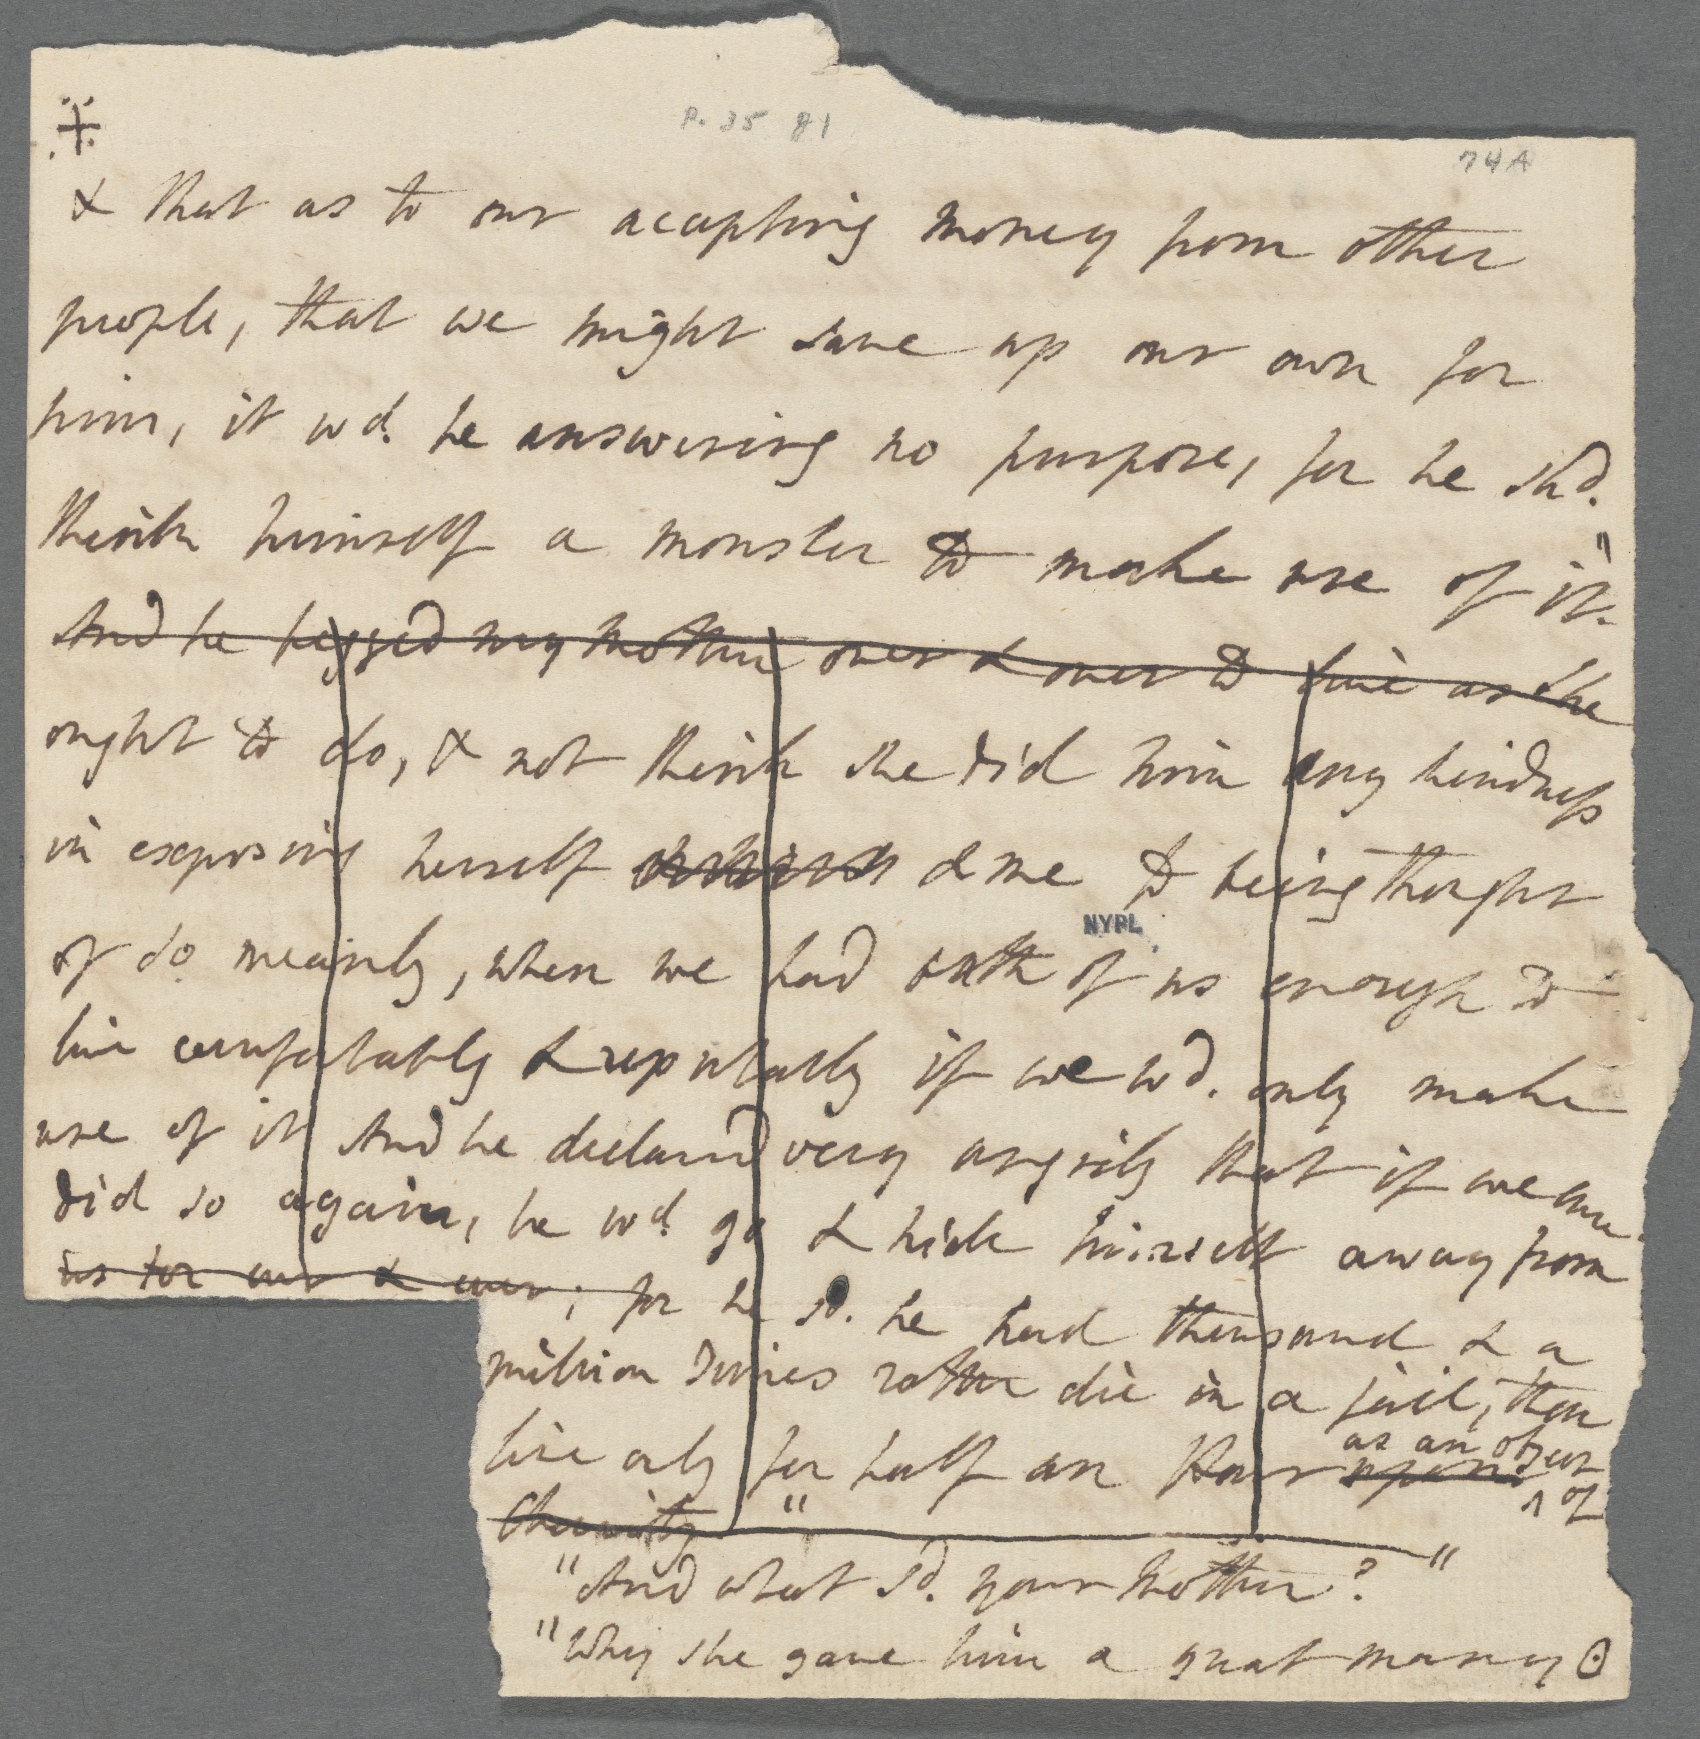 P. 35 81
74A
& that as to our accepting money from other
people, that we might save up our own for
him, it wd. be answering no purpose, for he shd.
think himself a monster to make use of it."
And he begged my mother over & over to live as she
ought to do, & not think she did him any kindness
in exposing herself & me to being thought
of so meanly, when we had both of us enough to
live comfortably & reputably if we wd. only make
use of it And he declared very angrily that if we ever
did so again, he wd. go & hide himself away from
us for ever & ever; for he sd. he had thousand & a
million Times rather die in a jail, than
live only for half an Hour upon
as an object
of
Charity "
"And what sd. your Mother? "
"Why she gave him a great many
NYPL